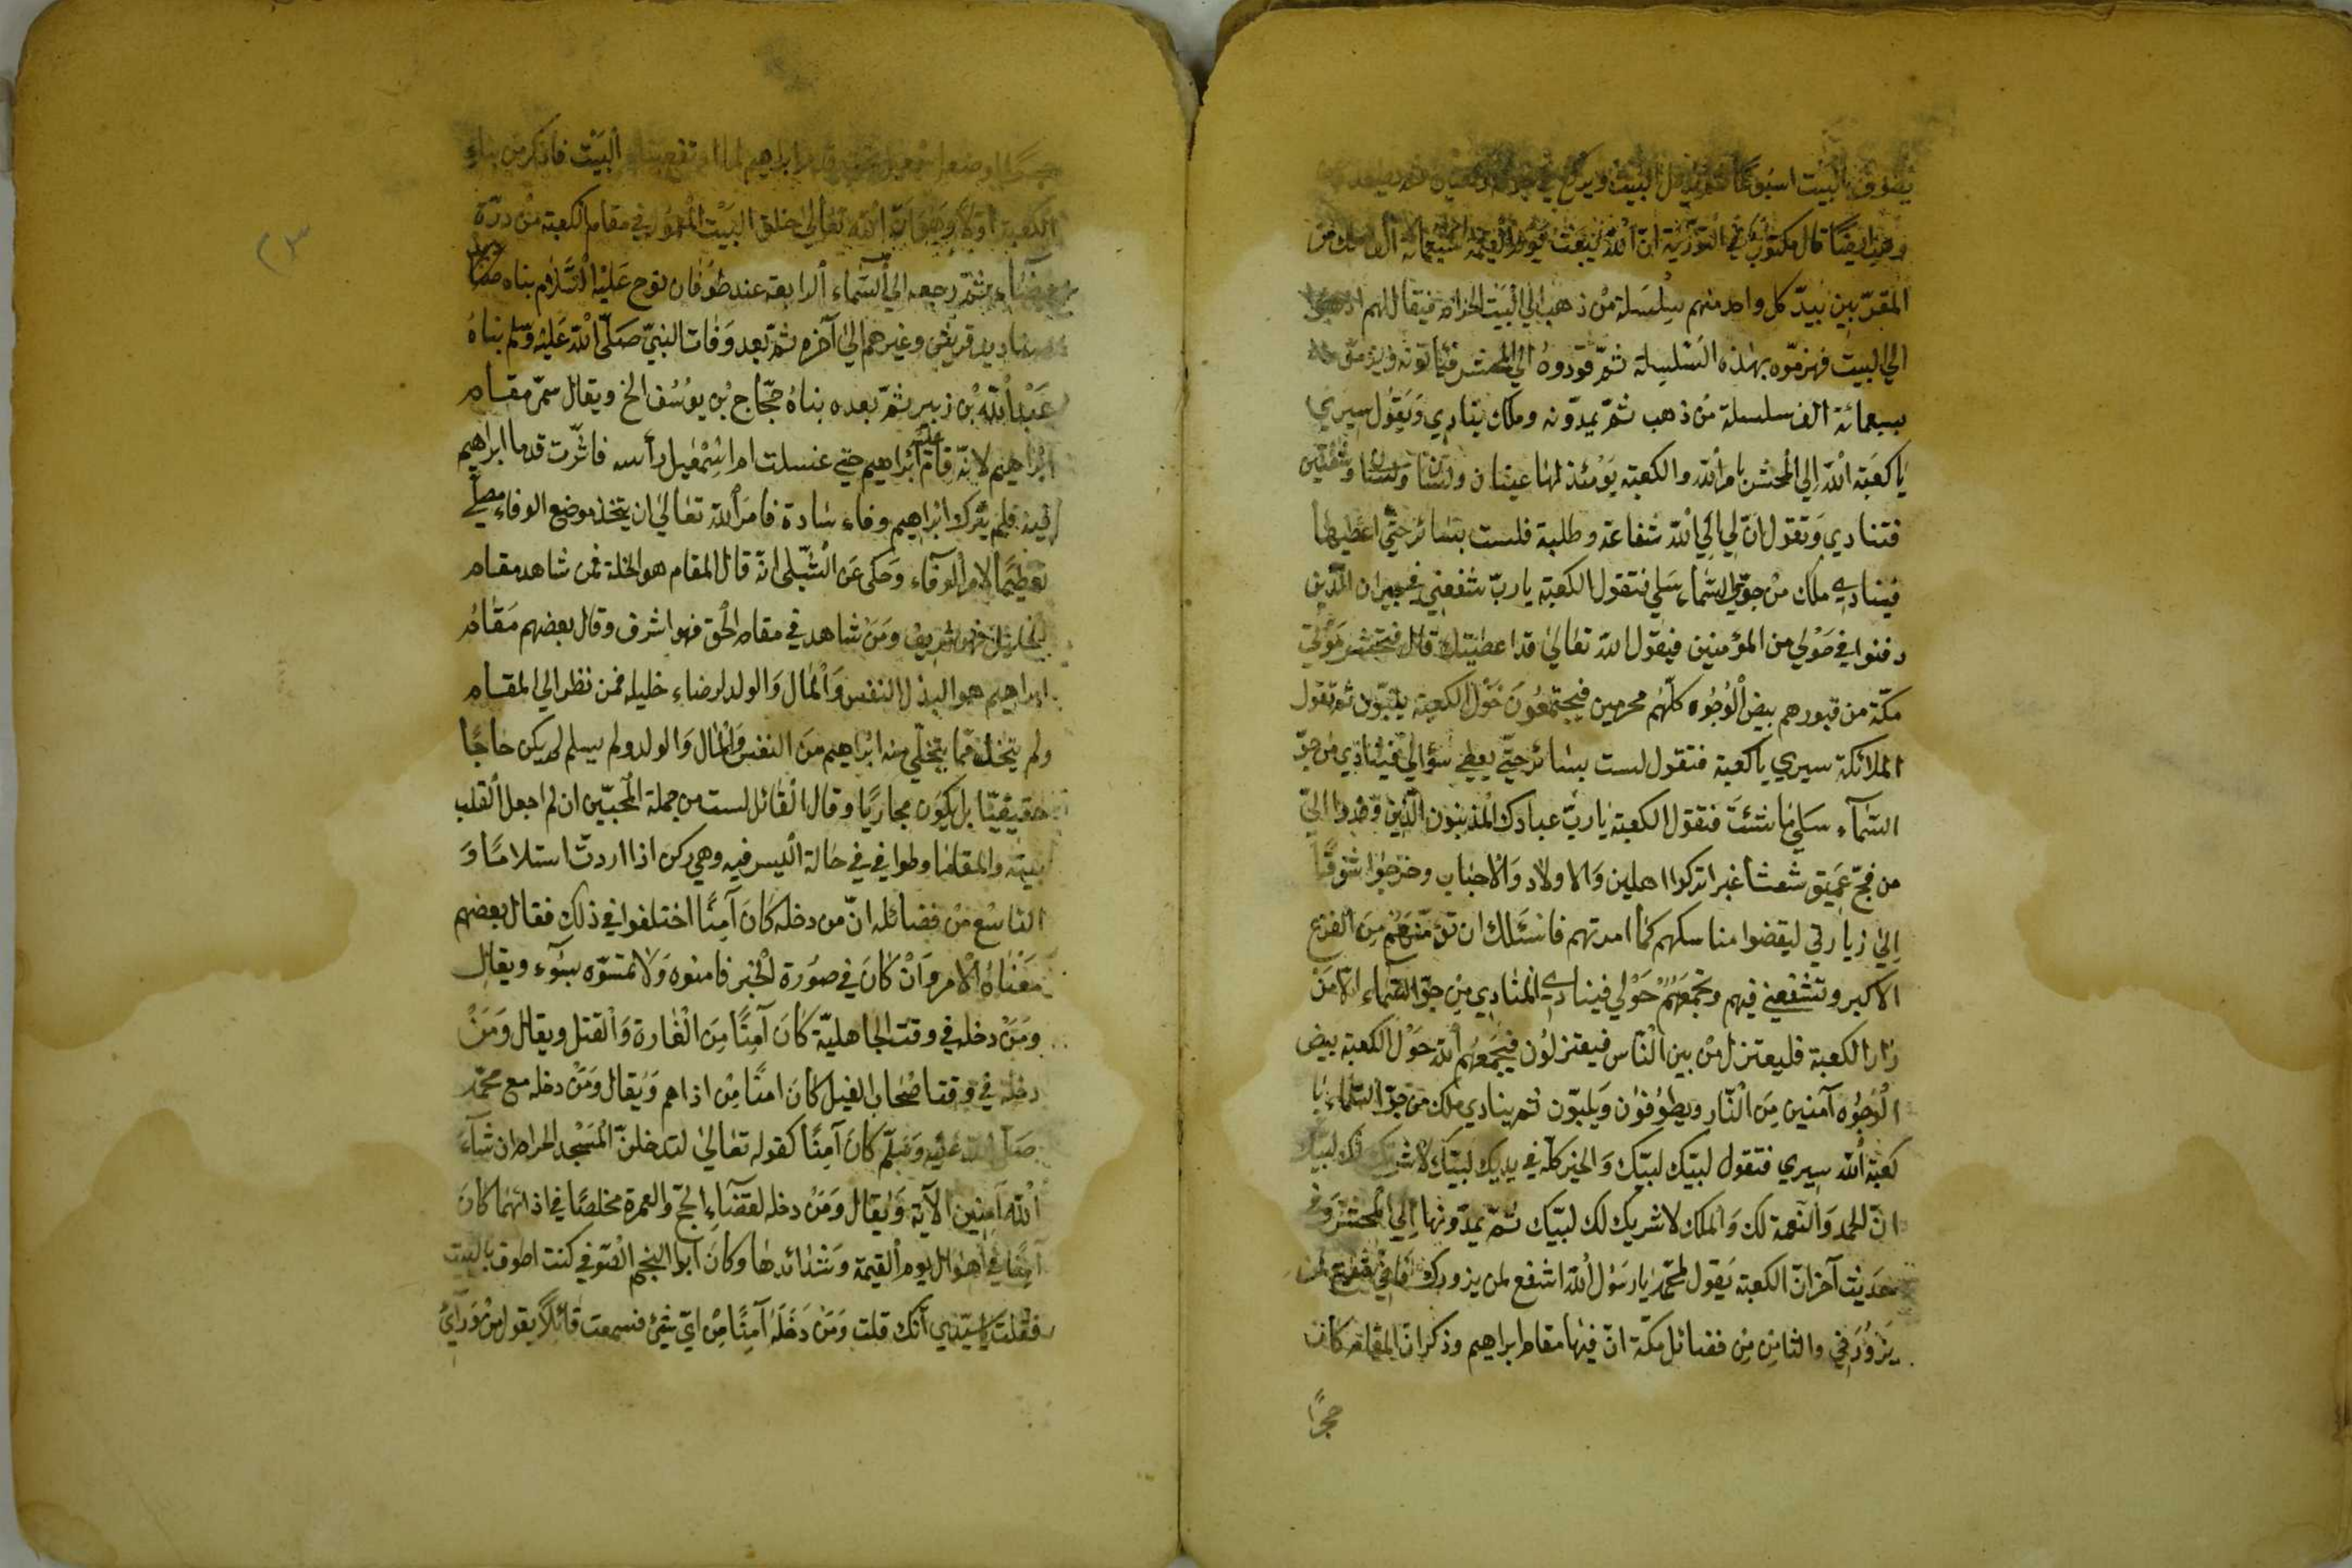 يطوف بالبيت اسبوعا ثم يدخل البيت ويركع
ايضا قال مكتوب في التورية ان الله يبعث يوم القيمة سبعمائة الف ملك من
المقرّبين بيد كل واحد منهم سلسلة من ذهب الي البيت الحرام فيقال لهم اذهبوا
الي البيت فهزمّوه بهذه السّلسلة ثمّ قودوه الي المحشر فيأتونه
بسبعمائة الف سلسلة من ذهب ثمّ يمدّونه وملك ينادي ويقول سيري
يا كعبة الله الي المحشر بامر الله والكعبة يومئذ لها عينان ولسان وشفتين
فتنادي وتقول انّ لي الي الله شفاعة وطلبة فلست بسائر حتّي اعطيها
فينادي ملك من جوّ السّماء سلي فتقول الكعبة يا ربّ شفعني في جيران الّذين
دفنوا في حولي من المؤمنين فيقول الله تعالي قد اعطيتك قال فيحشر موتي
مكّة من قبورهم بيض الوجوه كلّهم محرمين فيجتمعون حول الكعبة يلبّون ثم تقول
الملائكة سيري يا كعبة فتقول لست بسائر حتّي يعطي سؤالي فينادي من جوّ
السّماء سلي ما شئت فتقول الكعبة يا ربّ عبادك المذنبون الّذين وفدوا اليّ
من فجّ عميق شعثا غبرا تركوا اهلين والاولاد والاحباب وخرجوا شوقا
الي زيارتي ليقضوا مناسكهم كما امرتهم فاسئلك ان تؤمّنهم من الفزع
الاكبر وتشفعني فيهم وتجمعهم حولي فينادي المنادي من جوّ السّماء الا من
زار الكعبة فليعتزل من بين النّاس فيعتزلون فيجمعهم الله حول الكعبة بيض
الوجوه آمنين من النّار ويطوفون ويلبّون ثم ينادي ملك من جوّ السّماء يا
كعبة الله سيري فتقول لبيّك لبيّك والخير كلّه في يديك لبيّك لا شريك لك لبيّك
انّ الحمد والنّعمة لك والملك لا شريك لك لبيّك ثمّ يمدّونها الي المحشر وفي
حديث آخر انّ الكعبة يقول لمحمّد يا رسول الله اشفع لمن يزورك فاني شفيع لمن
يزورني والثامن من فضائل مكّة انّ فيها مقام ابراهيم وذكر انّ المقام كان
حجرًا
حجرا وضع ابراهيم لما ارتفع بناء البيت فاذكر من بناء
الكعبة اولا وهو انّ الله تعالي خلق البيت المعمور في مقام الكعبة من درّة
بيضاء ثمّ رجعه الي السّماء الرابعة عند طوفان نوح عليه السّلام بناه
صناديد قريش وغيرهم الي آخره ثمّ بعد وفات النبيّ صلّى الله عليه وسلم بناه
عبد الله بن زبير ثمّ بعده بناه حجّاج بن يوسف الخ ويقال سمّي مقام
ابراهيم لانّه قام عليه ابراهيم حتي غسلت ام اسمعيل رأسه فاثّرت قدما ابراهيم
فيه فلم يترك ابراهيم وفاء سادة فامر الله تعالي ان يتّخذ موضع الوفاء مصلّي
تعظيما لامر الوفاء وحكى عن الشّبلى انه قال المقام هو الخلة فمن شاهد مقام
الخليل فهو شريف ومن شاهد في مقام الحق فهو اشرف وقال بعضهم مقام
ابراهيم هو البذل النفس والمال والولد لرضاء خليله فمن نظر الي المقام
ولم يتخلّ ممّا يتخلّي منه ابراهيم من النفس والمال والولد ولم يسلم لم يكن حاجّا
حقيقيّا بل يكون مجازيّا وقال القائل لست من جملة المحبّين ان لم اجعل القلب
بيته والمقاما وطوافي في حالة اليسر فيه وهي ركن اذا اردت استلاما و
التاسع من فضائله انّ من دخله كان آمنا اختلفوا في ذلك فقال بعضهم
معناه الامر وان كان في صورة الخبر فامنوه ولا تمسّوه بسوء ويقال
ومن دخله في وقت الجاهليّة كان آمنا من الغارة والقتل ويقال ومن
دخله في وقت اصحاب الفيل كان امنا من اذاهم ويقال ومن دخله مع محمّد
صلّى الله عليه وسلّم كان آمنا كقوله تعالي لتدخلنّ المسجد الحرام ان شآء
الله آمنين الآية ويقال ومن دخله لقضاء الحجّ والعمرة مخلصا في اذائهما كان
آمنا في اهوال يوم القيمة وشدائدها وكان ابو النجم الصّوفي كنت اطوف بالبيت
فقلت يا سيّدي انّك قلت ومن دخله آمنا من ايّ شئ فسمعت قائلا يقول من ورائي